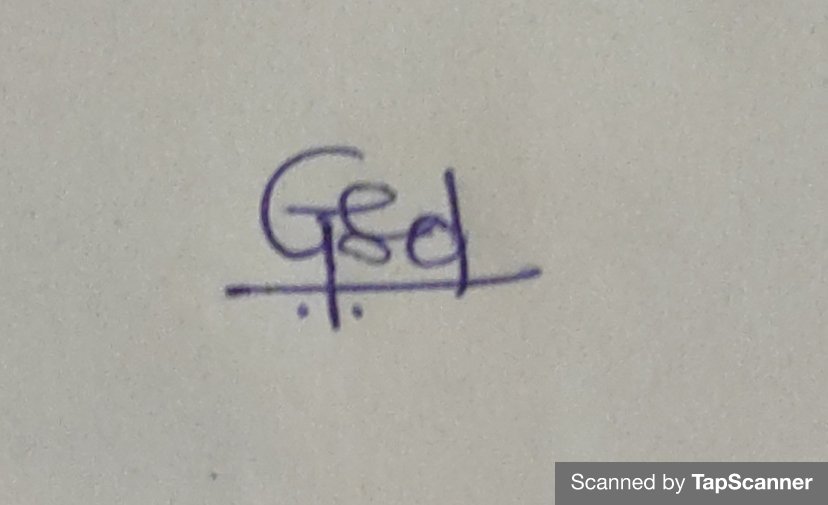 Gsd
Scanned by TapScanner